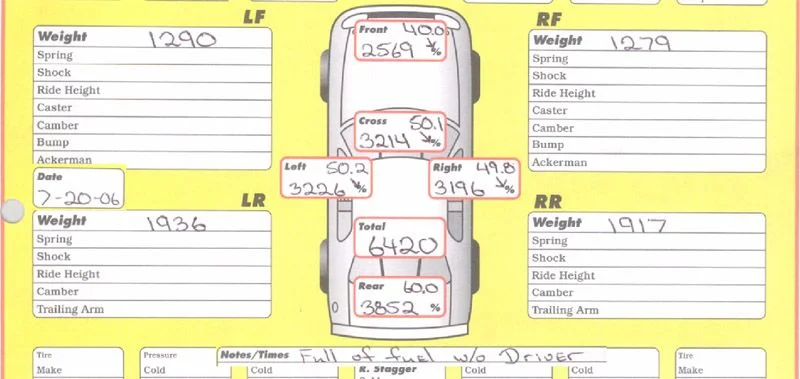 LF
Weight 1290
Spring
Shock
Ride Height
Caster
Camber
Bump
Ackerman
Front 40.0
2569 %
RF
Weight 1279
Spring
Shock
Ride Height
Caster
Camber
Bump
Ackerman
Cross 50.1
3214 %
Left 50.2
3226 %
Right 49.8
3196 %
Date
7-20-06
LR
Weight 1936
Spring
Shock
Ride Height
Camber
Trailing Arm
Total
6420
Rear 60.0
3852 %
RR
Weight 1917
Spring
Shock
Ride Height
Camber
Trailing Arm
Notes/Times Full of fuel w/o Driver
Tire
Make
Pressure
Cold
Cold
R. Stagger
Cold
Cold
Tire
Make